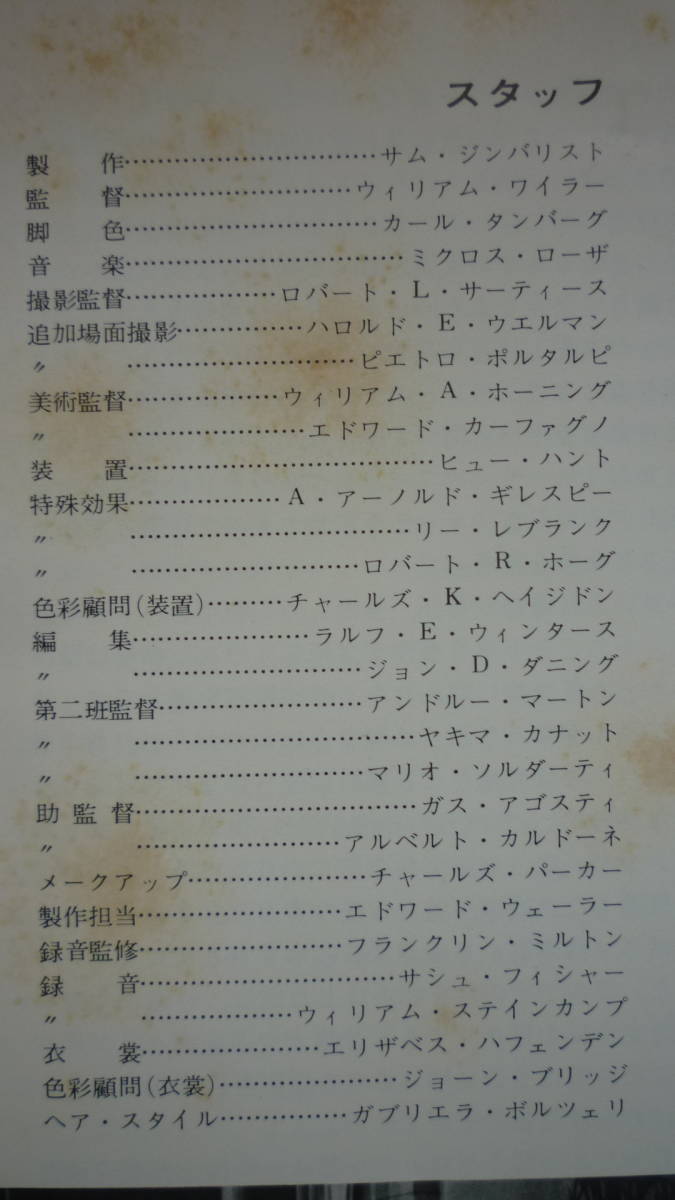 スタッフ
製作……………………………サム・ジンバリスト
監督…………………………ウィリアム・ワイラー
脚色……………………………カール・タンバーグ
音楽………………………………ミクロス・ローザ
撮影監督………………ロバート・L・サーティース
追加場面撮影……………ハロルド・E・ウエルマン
〃…………………………ピエトロ・ポルタルピ
美術監督………………ウィリアム・A・ホーニング
〃……………………エドワード・カーファグノ
装置…………………………………ヒュー・ハント
特殊効果………………A・アーノルド・ギレスピー
〃………………………………リー・レブランク
〃…………………………ロバート・R・ホーグ
色彩顧問(装置)………チャールズ・K・ヘイジドン
編集…………………ラルフ・E・ウィンタース
〃…………………………ジョン・D・ダニング
第二班監督……………………アンドルー・マートン
〃………………………………ヤキマ・カナット
〃…………………………マリオ・ソルダーティ
助監督………………………………ガス・アゴスティ
〃………………………アルベルト・カルドーネ
メークアップ…………………チャールズ・パーカー
製作担当……………………エドワード・ウェーラー
録音監修……………………フランクリン・ミルトン
録音……………………………サシュ・フィシャー
〃………………ウィリアム・ステインカンプ
衣裳…………………エリザベス・ハフェンデン
色彩顧問(衣裳)…………………ジョーン・ブリッジ
ヘア・スタイル……………ガブリエラ・ボルツェリ